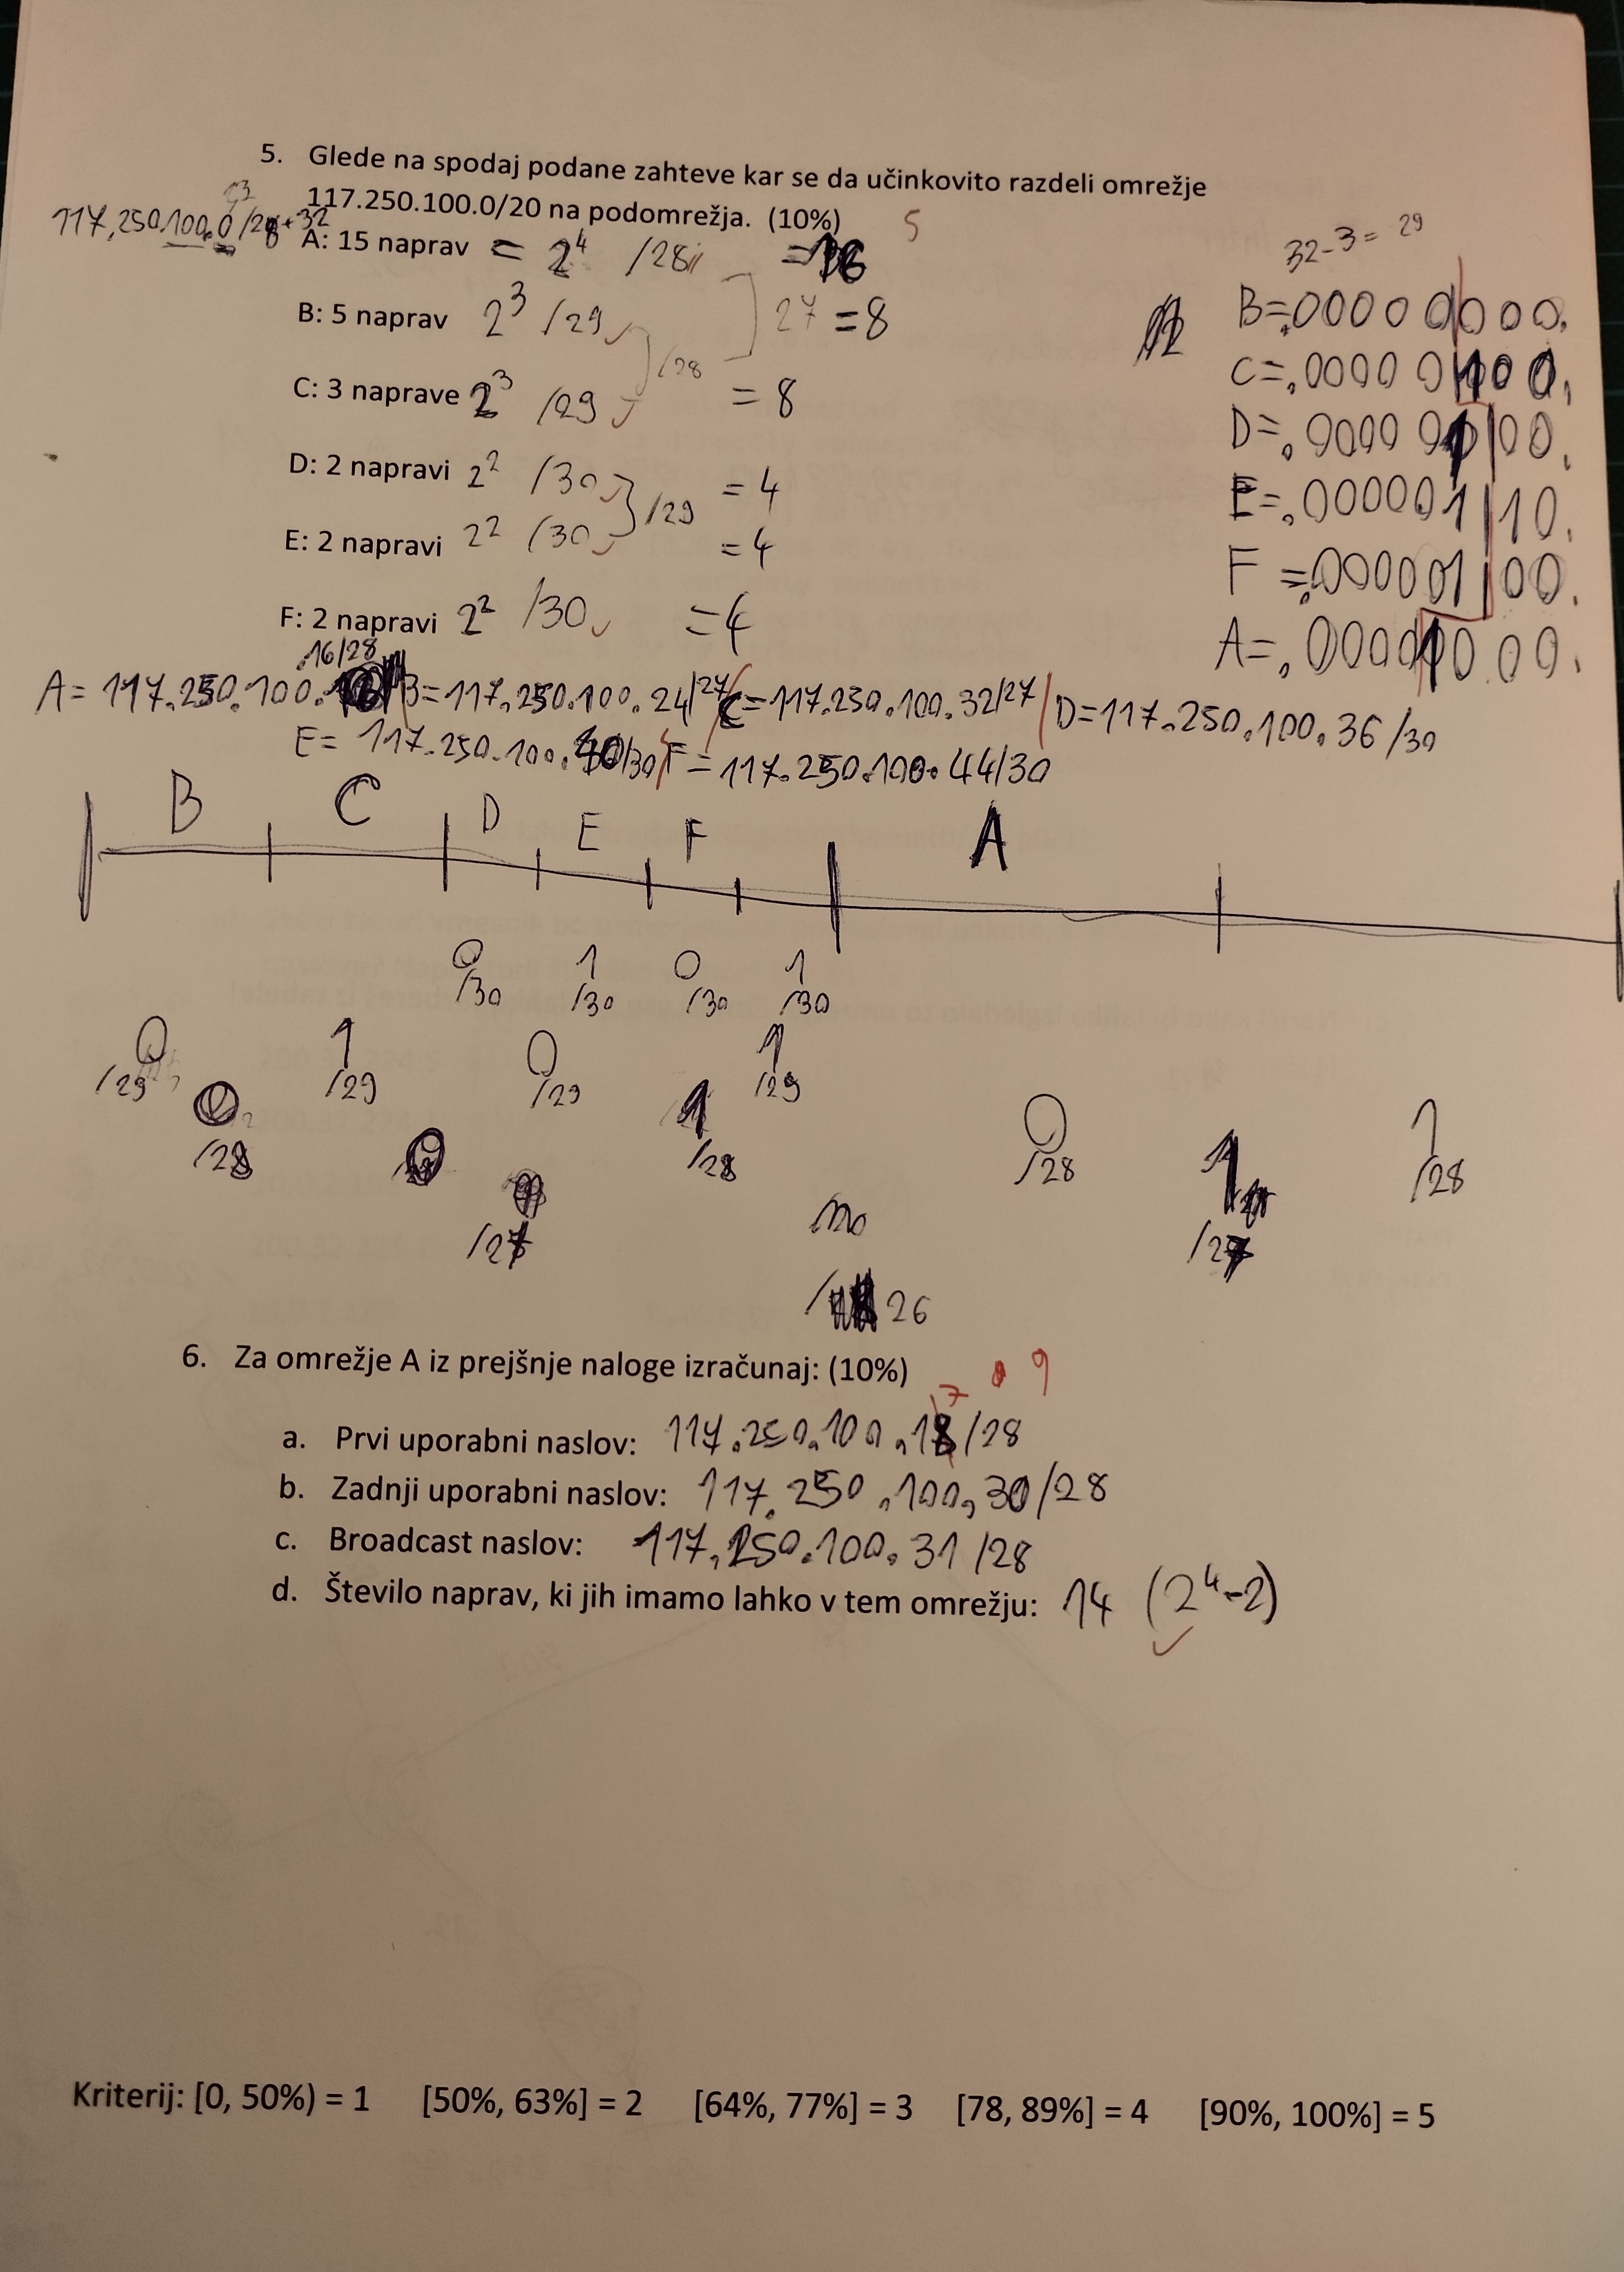 5. Glede na spodaj podane zahteve kar se da učinkovito razdeli omrežje
117.250.100.0/20 na podomrežja. (10%) 5
117.250.100.0/28 +32
32-3= 29
A: 15 naprav = 2^4 /28 =16
B: 5 naprav 2^3 /29 27 =8
/28
C: 3 naprave 2^3 /29 = 8
D: 2 napravi 2^2 /30 = 4
/29
E: 2 napravi 2^2 /30 = 4
F: 2 napravi 2^2 /30 =4
B=.00000|000.
C=.00000|100.
D=.000001|00.
E=.000001|10.
F=.000001|00.
A=.00010.00.
.16/28
A= 117.250.100. B=117.250.100.24/27 C=117.250.100.32/27 D=117.250.100.36/30
E= 117.250.100.40/30 F=117.250.100.44/30
B C D E F A
0 1 0 1
/30 /30 /30 /30
0 1 0 1
/29 /29 /29 /29
0 1 0 1 1
/28 /28 /28 /28
/27 /27
/26
6. Za omrežje A iz prejšnje naloge izračunaj: (10%) 9
7
a. Prvi uporabni naslov: 117.250.100.18/28
b. Zadnji uporabni naslov: 117.250.100.30/28
c. Broadcast naslov: 117.250.100.31/28
d. Število naprav, ki jih imamo lahko v tem omrežju: 14 (2^4-2)
Kriterij: [0, 50%) = 1 [50%, 63%] = 2 [64%, 77%] = 3 [78, 89%] = 4 [90%, 100%] = 5